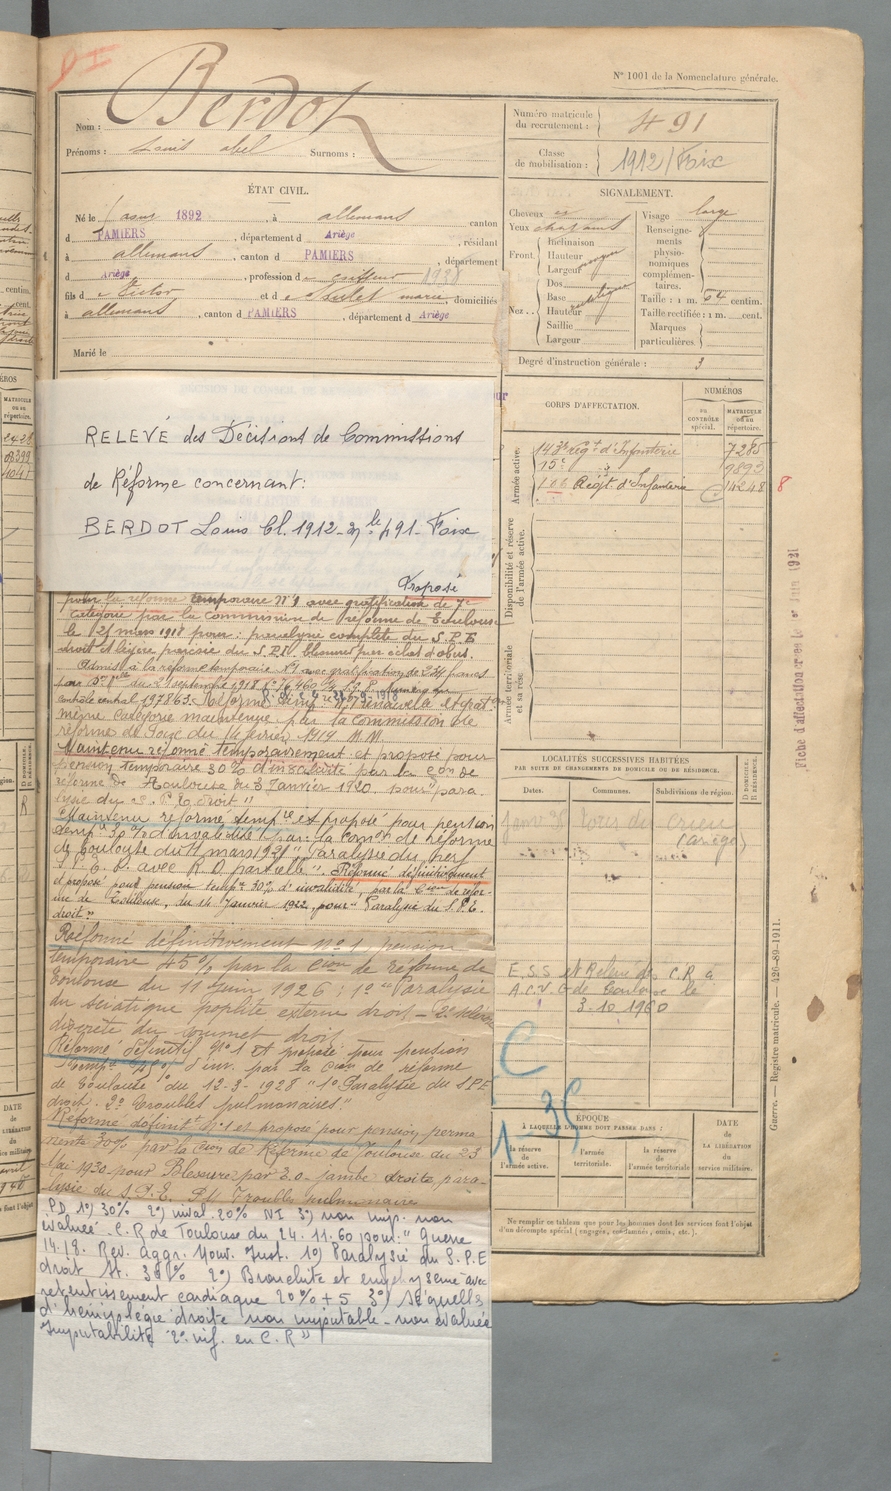 N° 1001 de la Nomenclature générale.
Nom : Berdot
Prénoms : Louis abel Surnoms :
Numéro matricule du recrutement : 491
Classe de mobilisation : 1912 / Foix
ÉTAT CIVIL.
Né le 1892, à allemans canton
d PAMIERS, département d Ariège, résidant
à allemans, canton d PAMIERS, département
d Ariège, profession d coiffeur 1928
fils d e Victor et d e marie, domiciliés
à allemans, canton d PAMIERS, département d Ariège
Marié le
SIGNALEMENT.
Cheveux
Yeux chatains
Front
Inclinaison
Hauteur
Largeur
Nez
Dos
Base
Hauteur
Saillie
Largeur
Visage large
Renseignements physionomiques complémentaires.
Taille : 1 m. 64 centim.
Taille rectifiée : 1 m. cent.
Marques particulières
Degré d'instruction générale : 3
RELEVÉ des Décisions de Commissions
de Réforme concernant:
BERDOT Louis Cl. 1912 - Mle 491 - Foix
Proposé
pour la réforme temporaire N°1 avec gratification de 7e
catégorie par la commission de réforme de Toulouse
le 21 mars 1918 pour : paralysie complète du S.P.E
droit et légère parésie du S.P.I. blessures par éclat d'obus.
Admis à la réforme temporaire N°1 avec gratification de francs
du 2 septembre 1918
contrôle central 197863. Réforme temp. N°1 renouvelée et grat.
même catégorie maintenue par la commission de
réforme de Foix du février 1919
Maintenu réformé temporairement et proposé pour
pension temporaire 30% d'invalidité par la Con de
réforme de Toulouse du 3 Janvier 1920 pour "para
lysie du S.P.E droit"
Maintenu réformé tempre et proposé pour pension
temp. 30% d'invalidité par la Comon de réforme
de Toulouse du 11 mars 1921 "Paralysie du nerf
S.P.E. D. avec R.D. partielle". Réformé définitivement
et proposé pour pension temp. 30% d'invalidité, par la Cion de réfor-
me de Toulouse, du 14 Janvier 1922, pour "Paralysie du S.P.E.
droit"
Réformé définitivement N°1 pension
temporaire 45% par la Cion de réforme de
Toulouse du 11 Juin 1926 : 1° Paralysie
du sciatique poplité externe droit - 2°
discrète du sommet droit
Réformé définitif N°1 et proposé pour pension
temp. 45% d'inv. par la Cion de réforme
de Toulouse du 12-3-1928 "1° Paralysie du SPE
droit. 2° Troubles pulmonaires."
Réformé définitf N°1 et proposé pour pension perma
nente 30% par la Cion de Réforme de Toulouse du 23
Mai 1930 pour Blessure par E.O. jambe droite, para-
lysie du S.P.E. Troubles pulmonaire
P.D. 1°) 30% 2°) inval. 20% NI 3°) non imp. non
évaluée C.R de Toulouse du 24.11.60 pour: "Guerre
14.18. Rev. Aggr. Nouv. Inst. 1°) Paralysie du S.P.E
droit St. 30% 2°) Bronchite et emphysème avec
retentissement cardiaque 20% + 5 3°) Séquelles
d'hémiplégie droite non imputable - non évaluée
Imputabilité 2e inf. en C.R"
CORPS D'AFFECTATION.
NUMÉROS
AU CONTRÔLE SPÉCIAL.
MATRICULE OU AU RÉPERTOIRE.
Armée active.
143e régt d'Infanterie 7285
15e 9893
Régt d'Infanterie 14248
8
Disponibilité et réserve de l'armée active.
Armée territoriale et sa réserve.
LOCALITÉS SUCCESSIVES HABITÉES
PAR SUITE DE CHANGEMENTS DE DOMICILE OU DE RÉSIDENCE.
Dates.
Communes.
Subdivisions du région.
D. DOMICILE. R. RÉSIDENCE.
E.S.S et Relevé des C.R à
A.C.V. de Toulouse le
3.10.1960
C
1-35
ÉPOQUE
À LAQUELLE L'HOMME DOIT PASSER DANS :
la réserve de l'armée active.
l'armée territoriale.
la réserve de l'armée territoriale.
DATE de LA LIBÉRATION du service militaire.
Ne remplir ce tableau que pour les hommes dont les services font l'objet
d'un décompte spécial (engagés, condamnés, omis, etc.).
Fiche d'affectation créée le 1er Juin 1921
Guerre. — Registre matricule. — 426-89-1911.